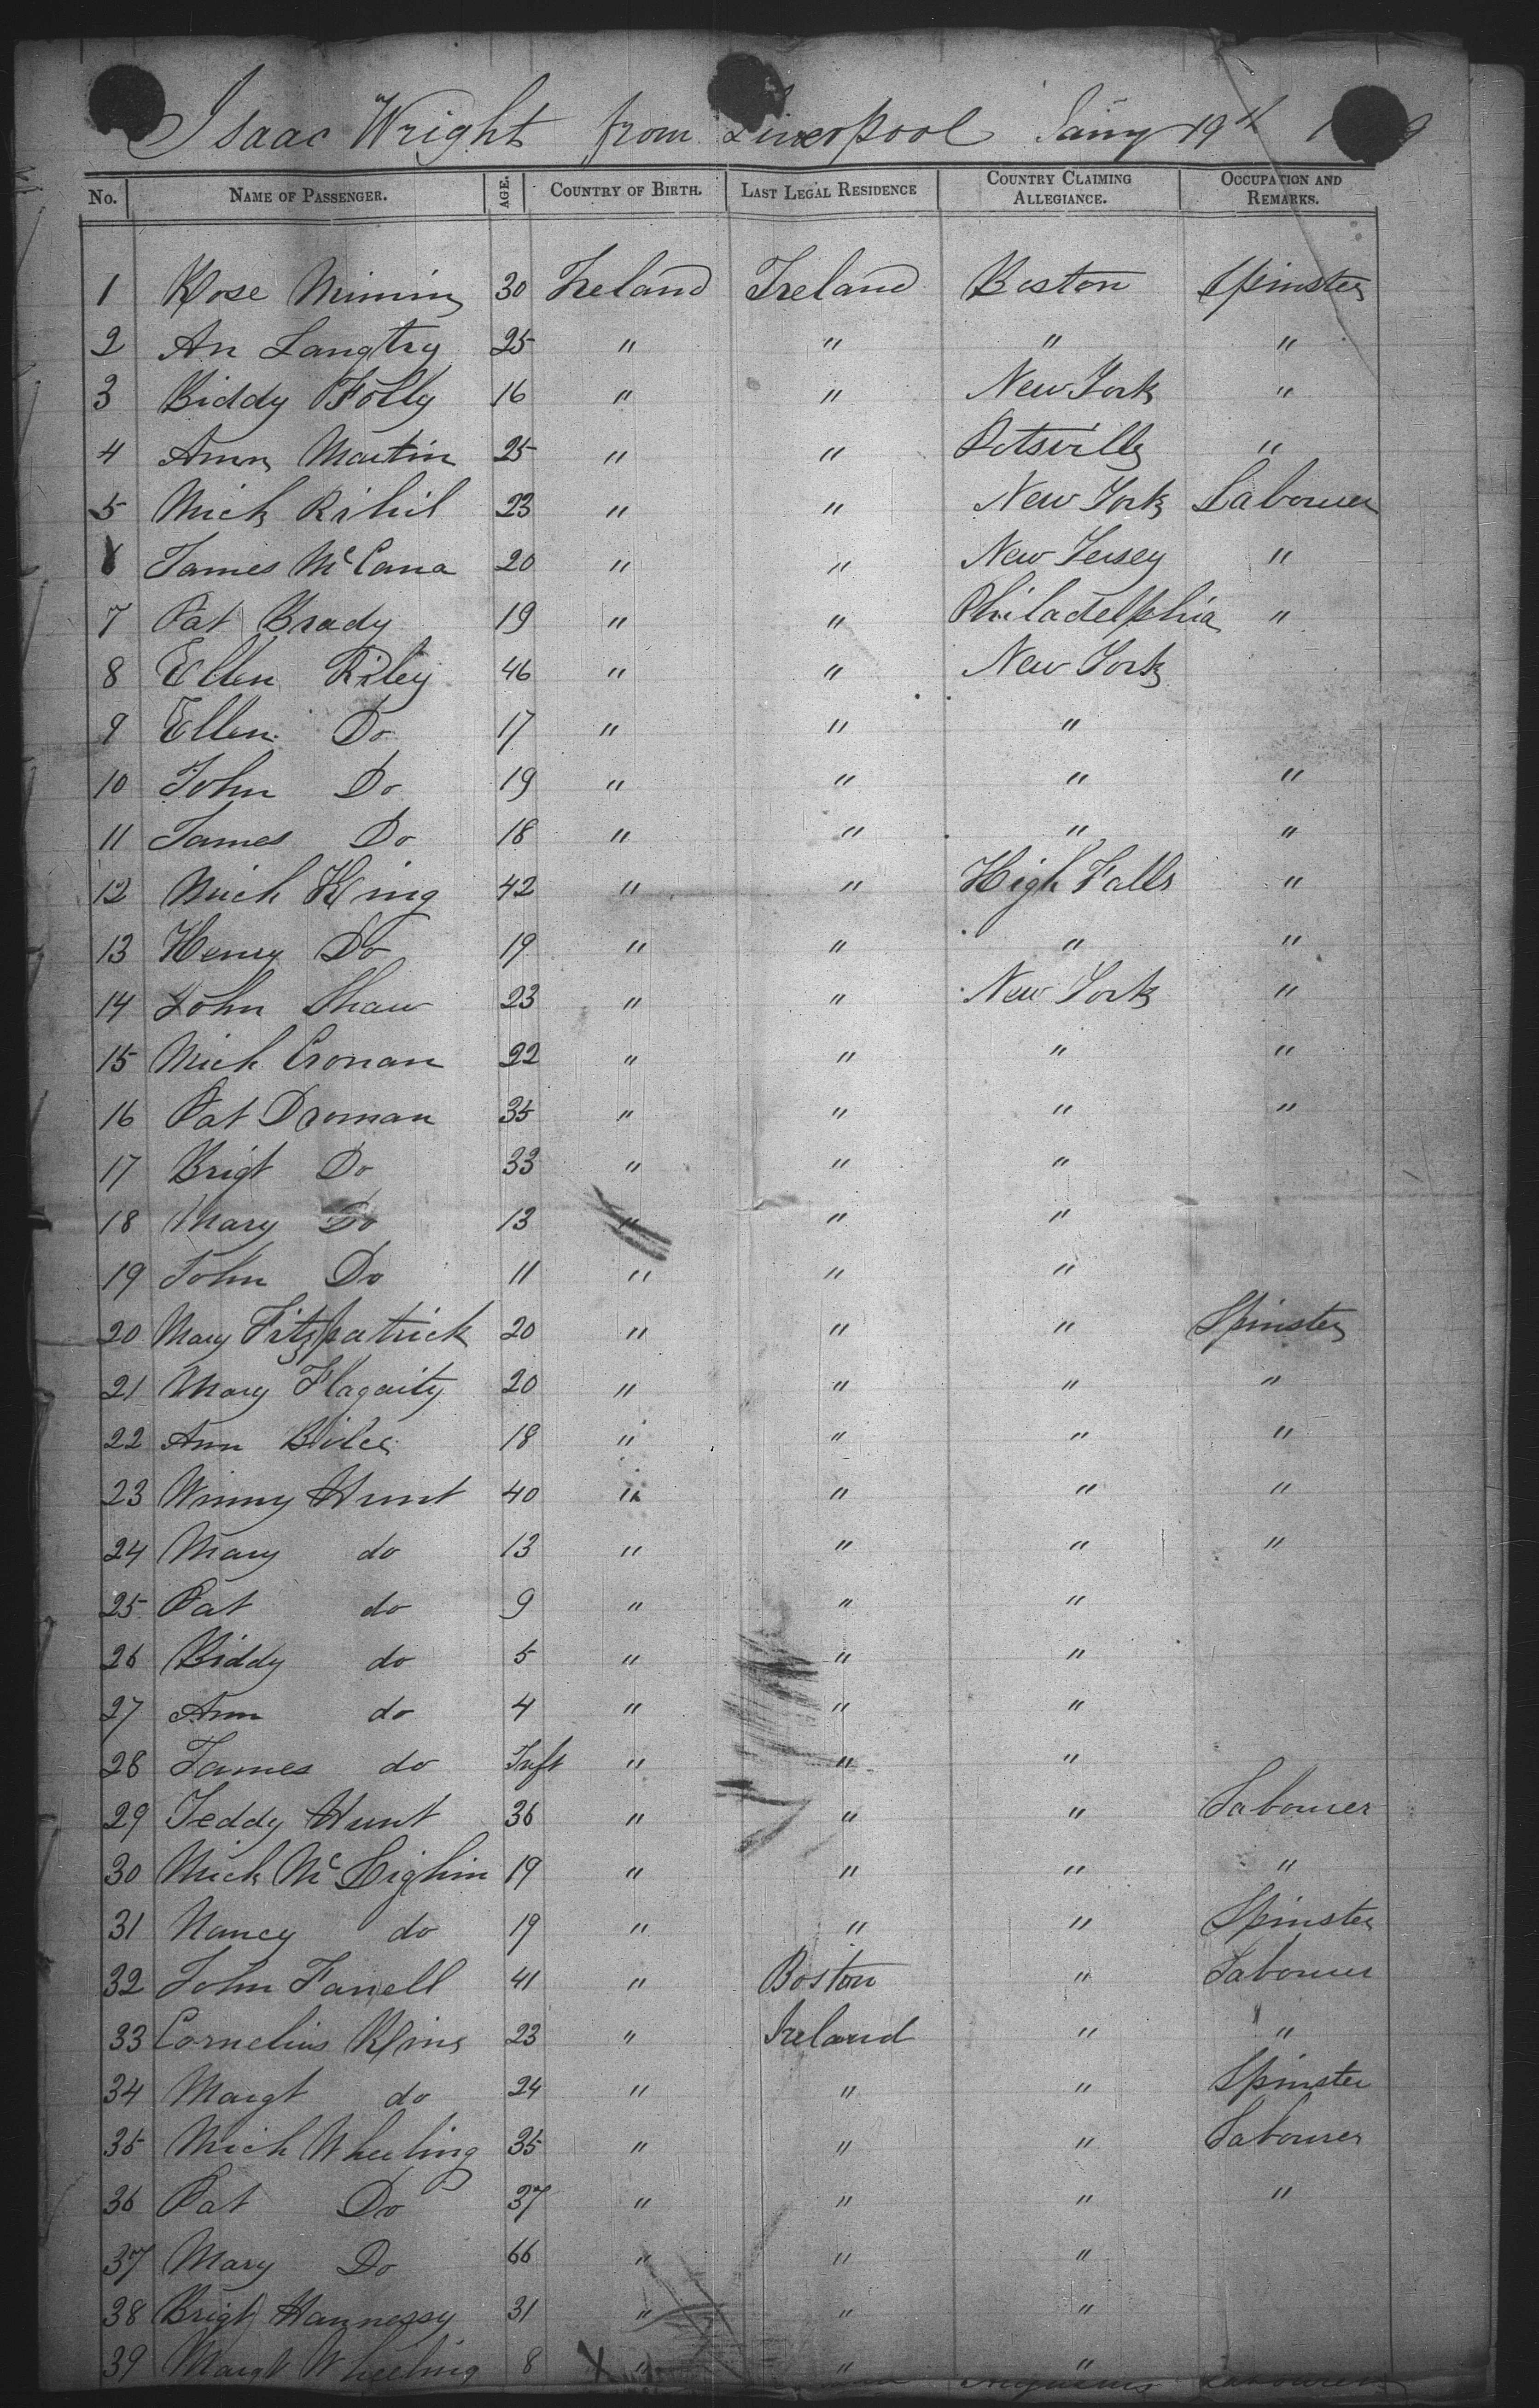 Isaac Wright from Liverpool Jany 19th
No. NAME OF PASSENGER. AGE. COUNTRY OF BIRTH. LAST LEGAL RESIDENCE COUNTRY CLAIMING ALLEGIANCE. OCCUPATION AND REMARKS.
1 Rose 30 Ireland Ireland Boston Spinster
2 An Langtry 25 " " " "
3 Biddy Folly 16 " " New York "
4 Ann Martin 25 " " Potsville "
5 Mick Rihil 23 " " New York Labourer
6 James McCana 20 " " New Jersey "
7 Pat Brady 19 " " Philadelphia "
8 Ellen Riley 46 " " New York
9 Ellen Do 17 " " "
10 John Do 19 " " " "
11 James Do 18 " " " "
12 Mich King 42 " " High Falls "
13 Henry Do 19 " " " "
14 John Shaw 23 " " New York "
15 Mich Cronan 22 " " " "
16 Pat Droman 35 " " " "
17 Brigt Do 33 " " "
18 Mary Do 13 " " "
19 John Do 11 " " "
20 Mary Fitzpatrick 20 " " " Spinster
21 Mary Flagaity 20 " " " "
22 Ann 18 " " " "
23 Winny Hunt 40 " " " "
24 Mary do 13 " " " "
25 Pat do 9 " " "
26 Biddy do 5 " " "
27 Ann do 4 " " "
28 James do Inft " " "
29 Teddy Hunt 36 " " " Labourer
30 Mick McLighin 19 " " " "
31 Nancy do 19 " " " Spinster
32 John Farrell 41 " Boston " Labourer
33 Cornelius King 23 " Ireland " "
34 Margt do 24 " " " Spinster
35 Mich Wheeling 35 " " " Labourer
36 Pat Do 37 " " " "
37 Mary Do 66 " " "
38 Brigt Hannessy 31 " " "
39 Margt Wheeling 8 " " "